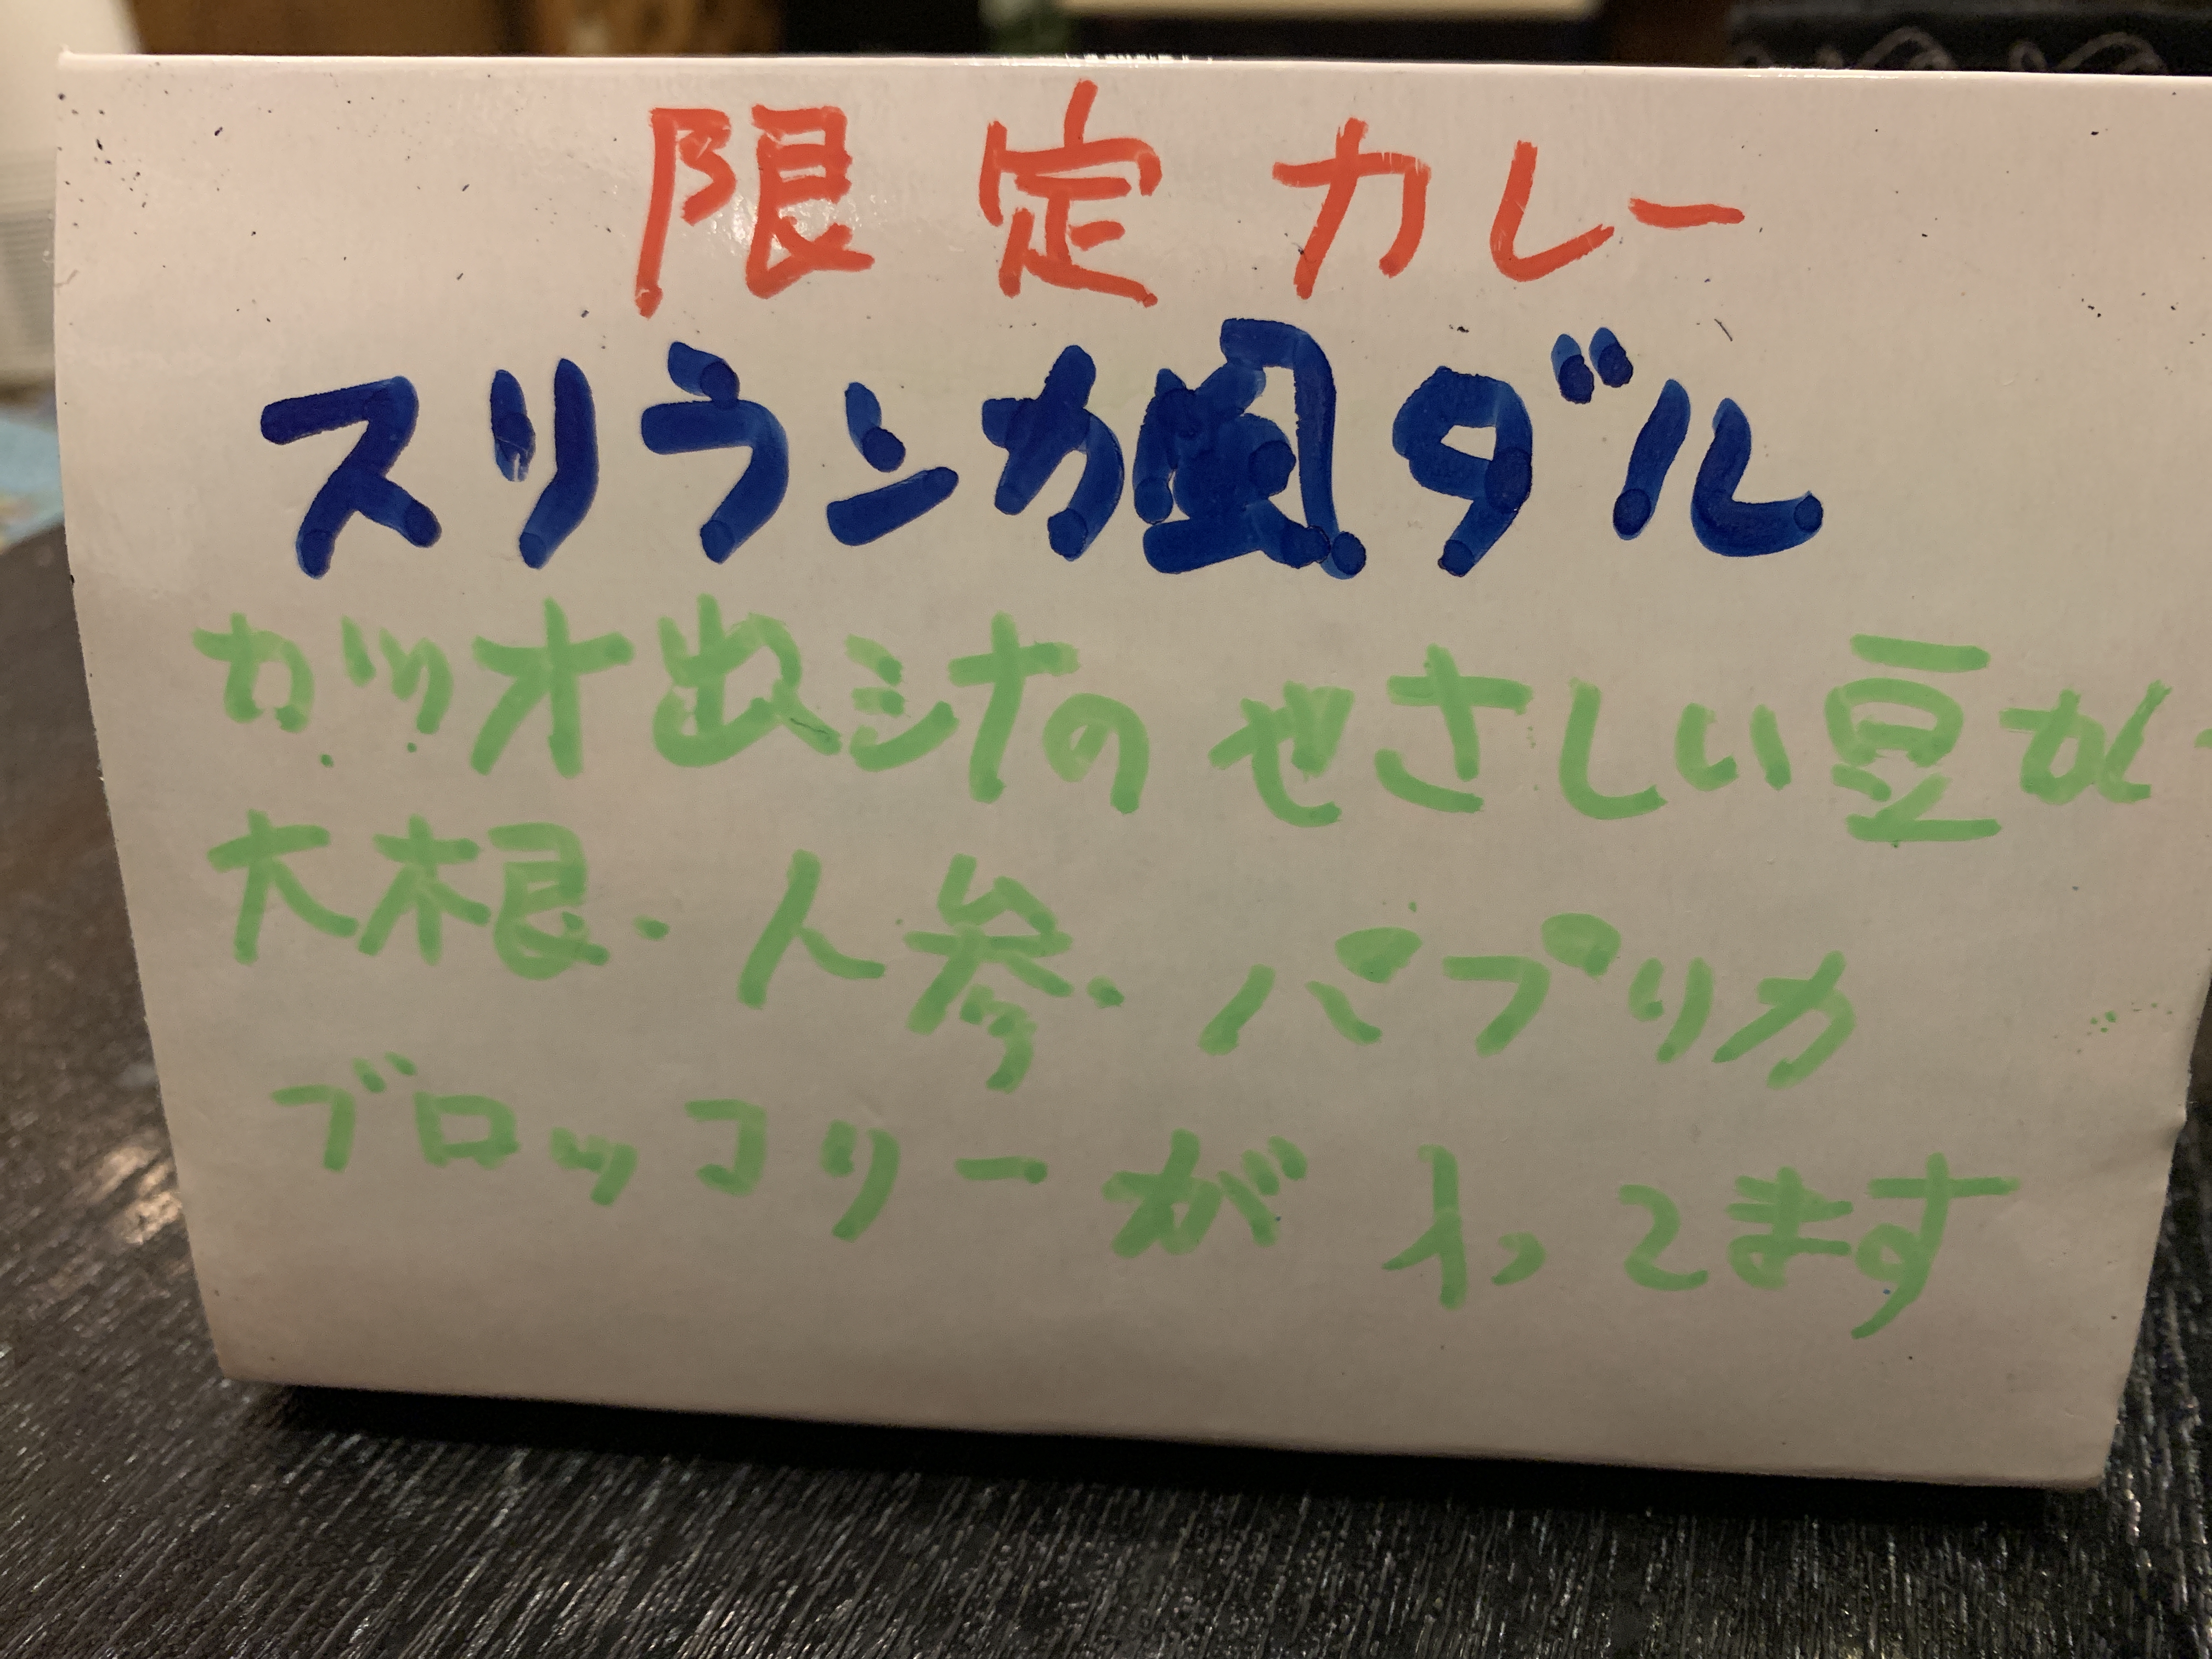 限定カレー
スリランカ風ダル
カツオ出汁のやさしい豆カレー
大根・人参・パプリカ
ブロッコリーが入ってます